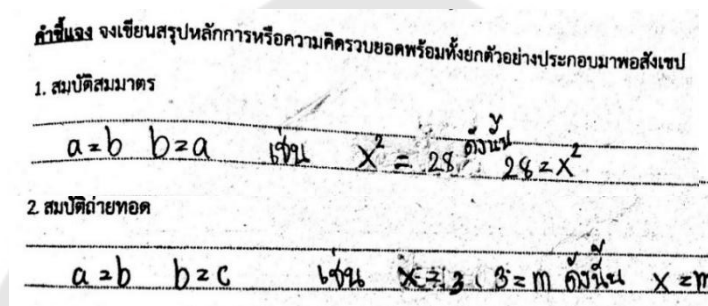 คำชี้แจง จงเขียนสรุปหลักการหรือความคิดรวบยอดพร้อมทั้งยกตัวอย่างประกอบมาพอสังเขป
1. สมบัติสมมาตร
a=b b=a เช่น x² = 28 ดังนั้น 28=x²
2. สมบัติถ่ายทอด
a=b b=c เช่น x=3, 3=m ดังนั้น x=m